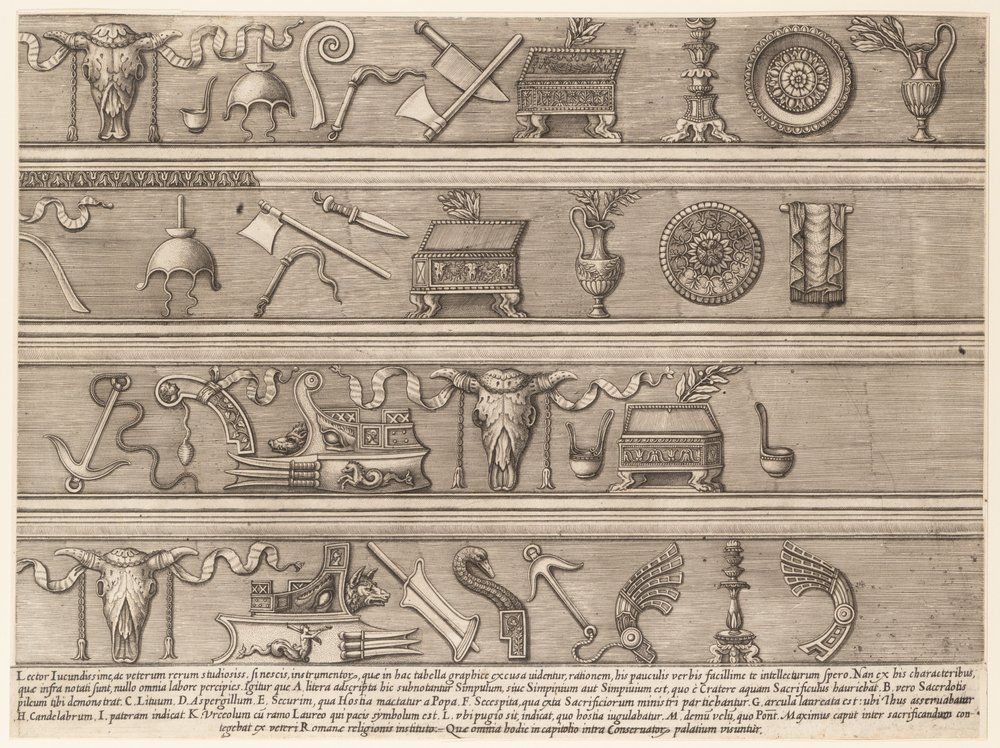 Lector Iucundissime, ac veterum rerum studiosiss. si nescis, instrumentor, quæ in hac tabella graphice excusa uidentur, rationem, his pauculis verbis facillime te intellecturum spero. Nan ex his characteribus,
quæ infra notati sunt, nullo omnia labore percipies. Igitur que A litera adscripta hic subnotantur Simpulum, siue Simpinum aut Simpiuium est, quo è Cratere aquam Sacrificulus hauriebat. B. vero Sacerdotis
pileum tibi demonstrat. C. Lituum. D. Aspergillum. E. Securim, qua Hostia mactatur a Popa. F. Secespita, qua exta Sacrificiorum ministri partiebantur. G. arcula laureata est: ubi Thus asseruabatur
H. Candelabrum, I. pateram indicat. K. Vrceolum cū ramo Laureo qui pacis symbolum est. L. vbi pugio sit, indicat, quo hostia iugulabatur. M. demū velū, quo Pont. Maximus caput inter sacrificandum con-
tegebat ex veteri Romanæ religionis instituto. Quæ omnia hodie in capitolio intra Conseruator palatium visuntur.